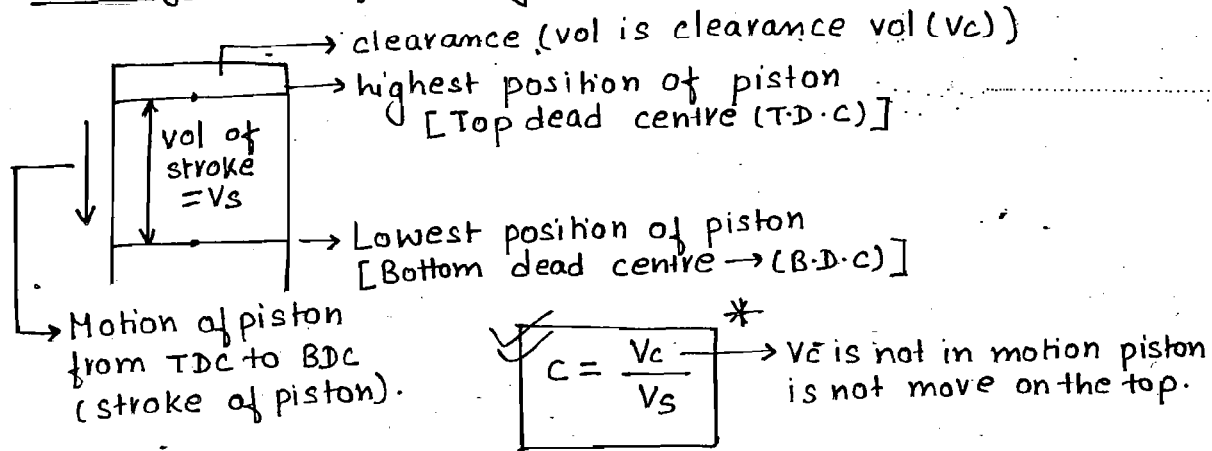 clearance (vol is clearance vol (Vc))
highest position of piston
[Top dead centre (T.D.C)]
vol of
stroke
=Vs
Lowest position of piston
[Bottom dead centre → (B.D.C)]
Motion of piston
from TDC to BDC
(stroke of piston).
*
C = Vc / Vs → Vc is not in motion piston
is not move on the top.